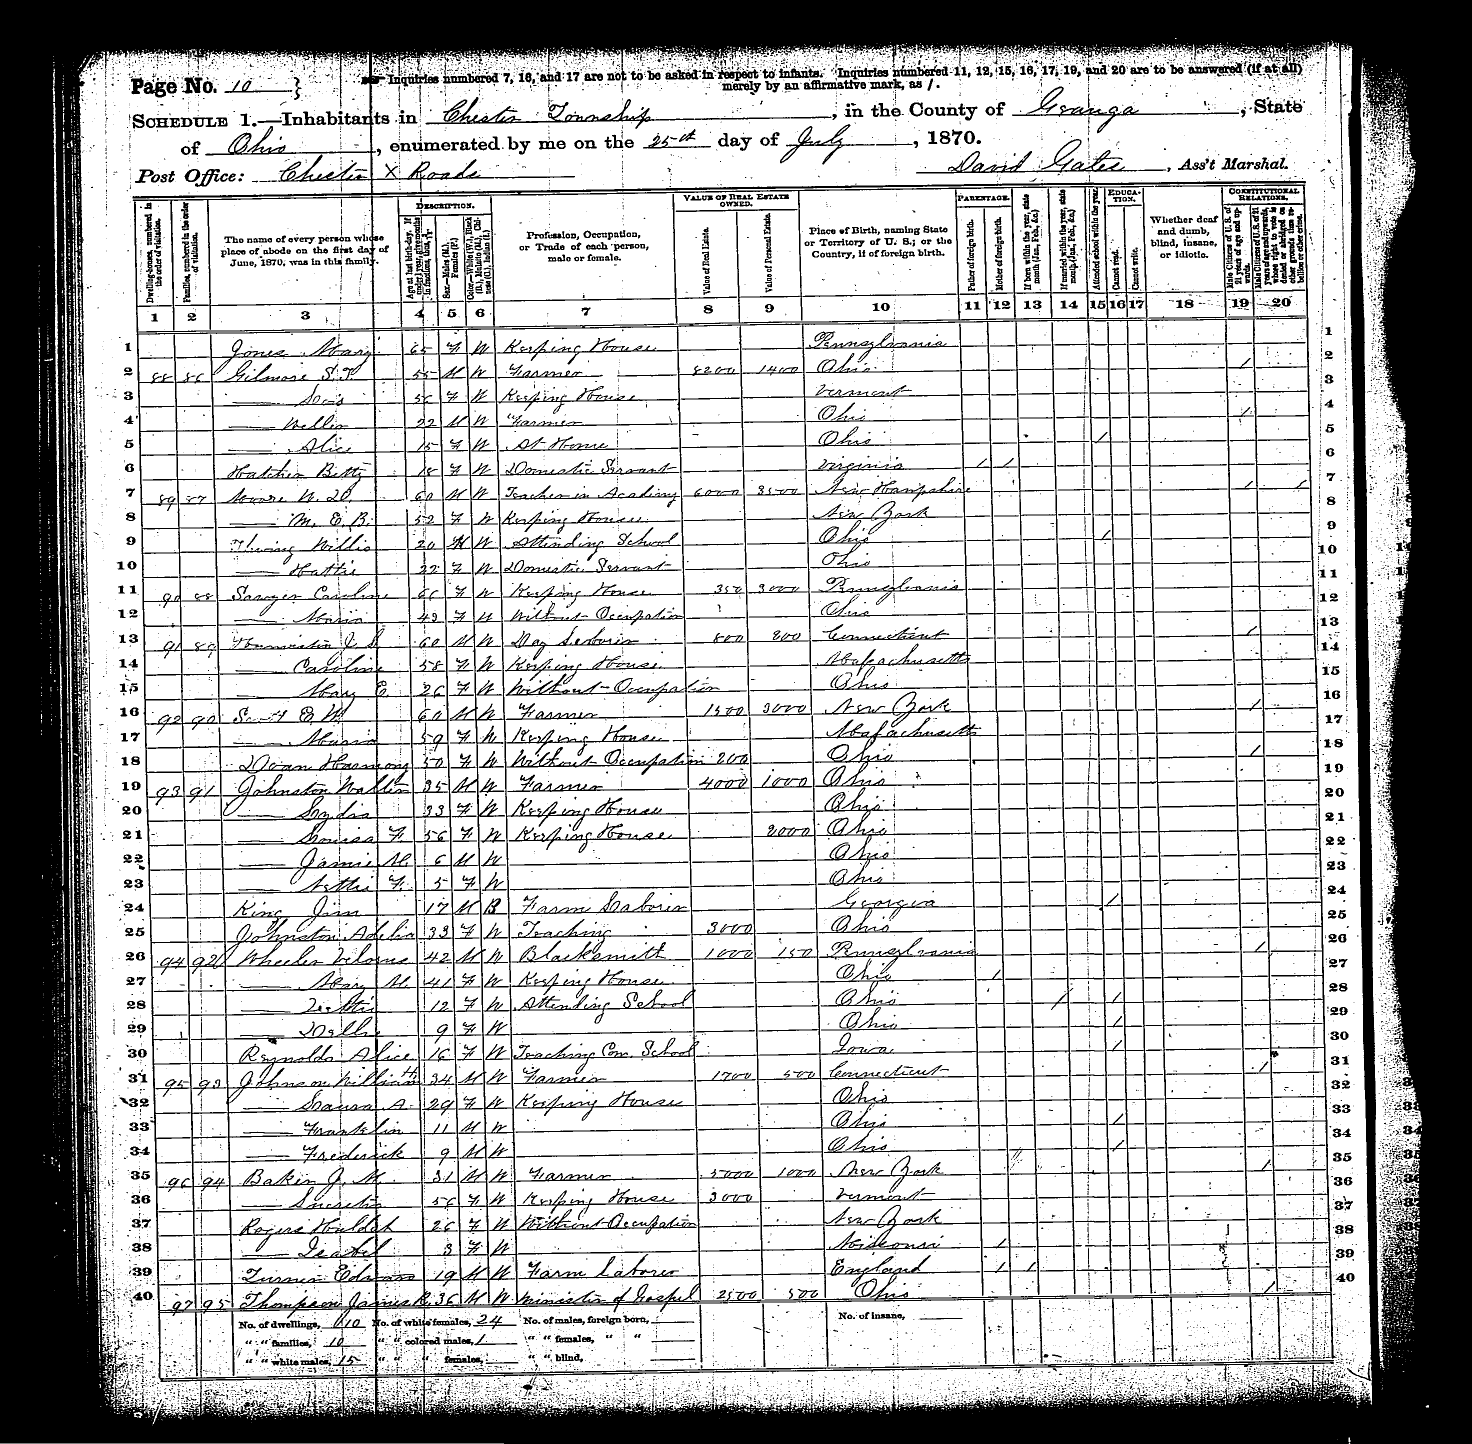 Page No. 10 } Inquiries numbered 7, 16, and 17 are not to be asked in respect to infants. Inquiries numbered 11, 12, 15, 16, 17, 19, and 20 are to be answered (if at all)
merely by an affirmative mark, as /.
SCHEDULE 1.—Inhabitants in Chester Township, in the County of Geauga, State
of Ohio, enumerated by me on the 25th day of July, 1870.
Post Office: Chester X Roads David Gates, Ass't Marshal.
Dwelling-houses, numbered in the order of visitation.
Families, numbered in the order of visitation.
The name of every person whose place of abode on the first day of June, 1870, was in this family.
DESCRIPTION.
Age at last birth-day. If under 1 year, give months in fractions, thus,
Sex.—Males (M.), Females (F.)
Color.—White (W.), Black (B.), Mulatto (M.), Chinese (C.), Indian (I.)
Profession, Occupation, or Trade of each person, male or female.
VALUE OF REAL ESTATE OWNED.
Value of Real Estate.
Value of Personal Estate.
Place of Birth, naming State or Territory of U. S.; or the Country, if of foreign birth.
PARENTAGE.
Father of foreign birth.
Mother of foreign birth.
If born within the year, state month (Jan., Feb., &c.)
If married within the year, state month (Jan., Feb., &c.)
Attended school within the year.
EDUCATION.
Cannot read.
Cannot write.
Whether deaf and dumb, blind, insane, or idiotic.
CONSTITUTIONAL RELATIONS.
Male Citizens of U. S. of 21 years of age and upwards.
Male Citizens of U. S. of 21 years of age and upwards, whose right to vote is denied or abridged on other grounds than rebellion or other crime.
1 2 3 4 5 6 7 8 9 10 11 12 13 14 15 16 17 18 19 20
1 Jones Mary 65 F W Keeping House Pennsylvania 1
2 88 86 Gilmore S. T. 55 M W Farmer 8200 1400 Ohio / 2
3 —— 56 F W Keeping House Vermont 3
4 —— 22 M W Farmer Ohio / 4
5 —— Alice 15 F W At Home Ohio / 5
6 Hatcher Betty 18 F W Domestic Servant Virginia / / 6
7 89 87 Moore W. D. 60 M W Teacher in Academy 6000 3500 New Hampshire / / 7
8 —— M. E. B. 52 F W Keeping House New York 8
9 Thwing Willis 20 M W Attending School Ohio / 9
10 —— Hattie 22 F W Domestic Servant Ohio 10
11 90 88 Sawyer Caroline 66 F W Keeping House 350 3000 Pennsylvania 11
12 —— Maria 43 F W Without Occupation Ohio 12
13 91 89 J. S. 60 M W Day Laborer 800 200 Connecticut / 13
14 —— Caroline 58 F W Keeping House Massachusetts 14
15 —— Mary E. 26 F W Without Occupation Ohio 15
16 92 90 Scott E. W. 60 M W Farmer 1500 3000 New York / 16
17 —— Maria 59 F W Keeping House Massachusetts 17
18 Doan Harmony 50 F W Without Occupation 200 Ohio / 18
19 93 91 Johnston 35 M W Farmer 4000 1000 Ohio 19
20 —— Lydia 33 F W Keeping House Ohio 20
21 —— Louisa F. 56 F W Keeping House 2000 Ohio 21
22 —— Jamie M. 6 M W Ohio 22
23 —— Nettie F. 5 F W Ohio 23
24 King Jim 17 M B Farm Laborer Georgia / 24
25 Johnston Adelia 33 F W Teaching 3000 Ohio 25
26 94 92 Wheeler 42 M W Blacksmith 1000 150 Pennsylvania / 26
27 —— Mary M. 41 F W Keeping House Ohio / 27
28 —— 12 F W Attending School Ohio / / 28
29 —— Dellie 9 F W Ohio / 29
30 Reynolds Alice 16 F W Teaching Com. School Iowa / 30
31 95 93 Johnson William H. 34 M W Farmer 1700 500 Connecticut / 31
32 —— Laura A. 29 F W Keeping House Ohio 32
33 —— Franklin 11 M W Ohio / 33
34 —— Frederick 9 M W Ohio / 34
35 96 94 Baker J. M. 31 M W Farmer 5000 1000 New York / 35
36 —— Lucretia 56 F W Keeping House 3000 Vermont 36
37 Rogers Huldah 26 F W Without Occupation New York 37
38 —— Isabel 3 F W Missouri / 38
39 Turner Edward 19 M W Farm Laborer England / / 39
40 97 95 Thompson James R. 36 M W Minister of Gospel 2500 500 Ohio / 40
No. of dwellings, 10 No. of white females, 24 No. of males, foreign born, No. of insane,
" " families, 10 " " colored males, 1 " " females, " "
" " white males, 15 " " " females, " " blind,